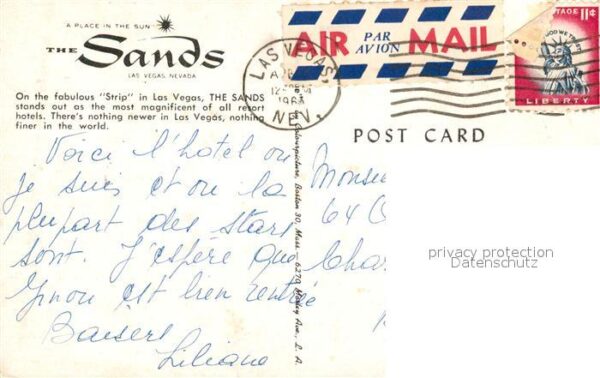 A PLACE IN THE SUN
THE Sands
LAS VEGAS, NEVADA
On the fabulous "Strip" in Las Vegas, THE SANDS
stands out as the most magnificent of all resort
hotels. There's nothing newer in Las Vegas, nothing
finer in the world.
AIR PAR AVION MAIL
LAS VEGAS,
NEV.
11¢
LIBERTY
POST CARD
Voici l'hotel ou
je suis et ou la
plupart des stars
sont. J'espère que
est bien rentrée
Baisers
Liliane
Colourpicture, Boston 30, Mass.
L. A.
64
privacy protection
Datenschutz